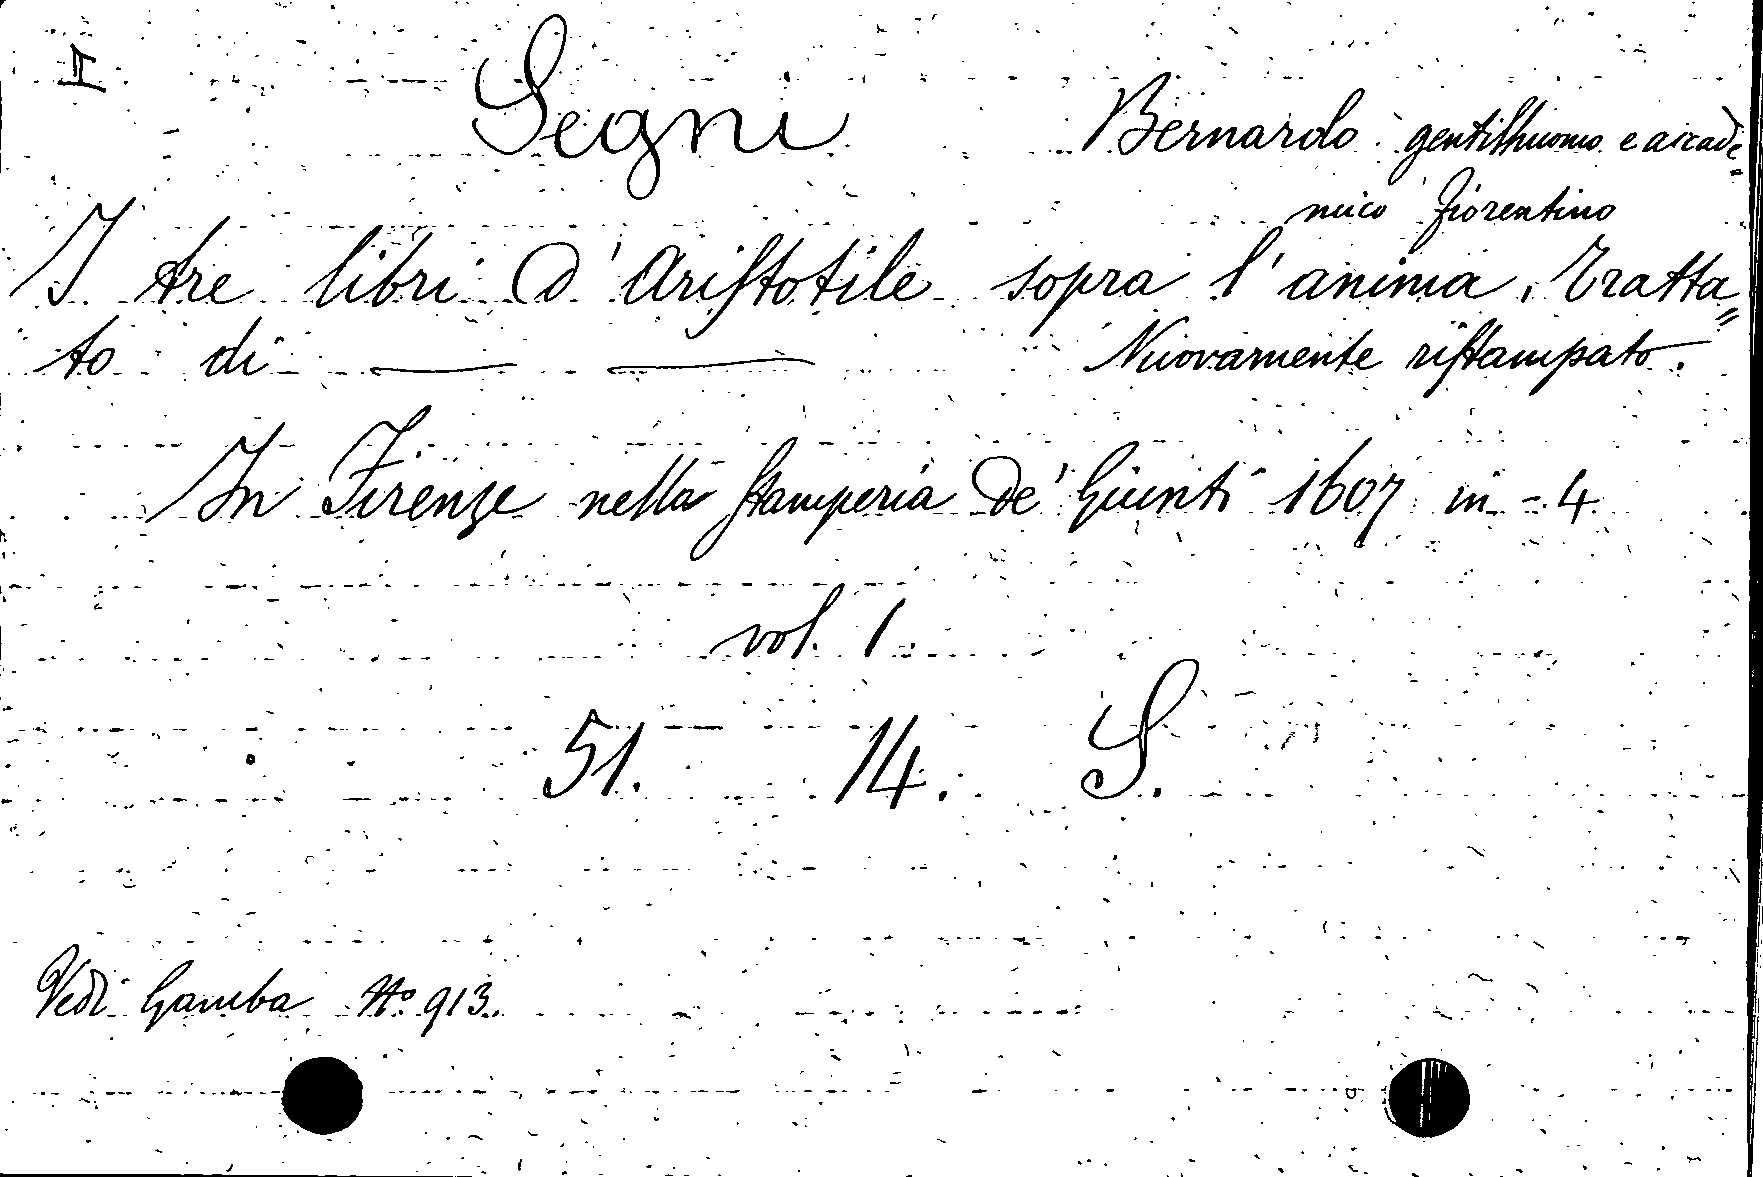 I
Segni Bernardo gentilhuomo e accade=
mico fiorentino
I tre libri d'Aristotile sopra l'anima, Tratta=
to di — — Nuovamente ristampato.
In Firenze nella stamperia de' Giunti 1607 in-4
vol. 1.
51. 14. S.
Vedi Gamba No. 913.